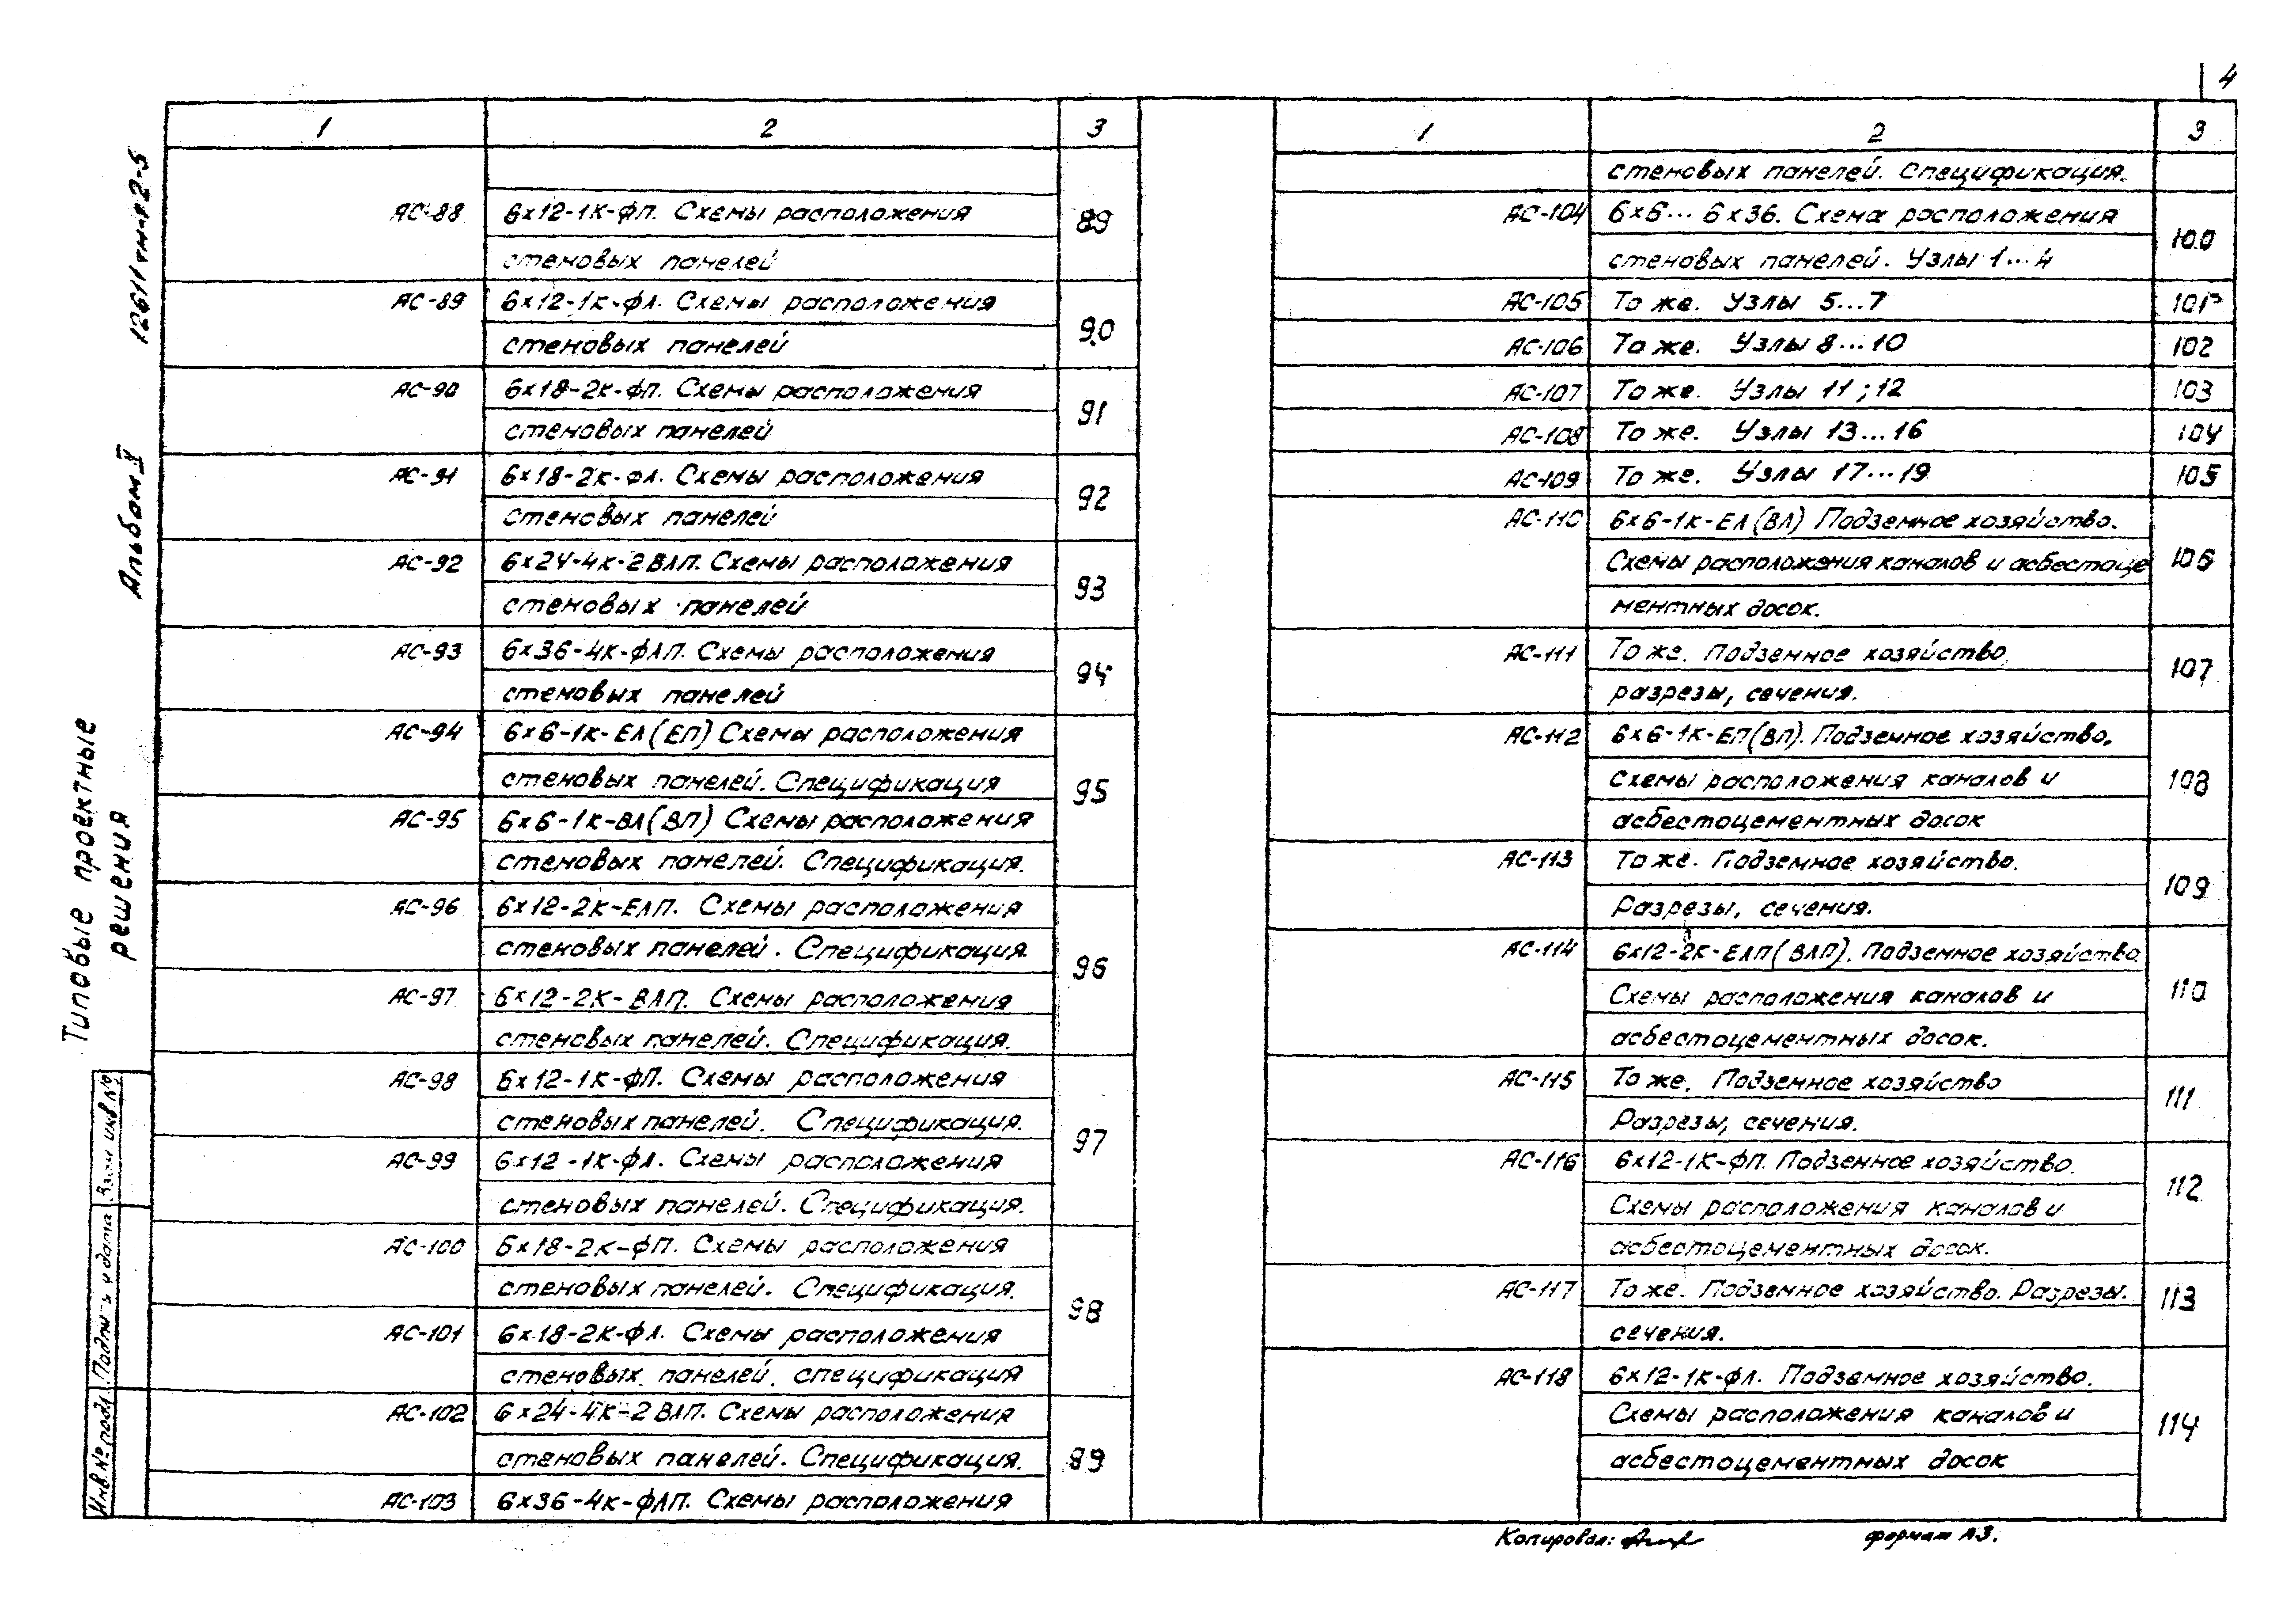 4
1 2 3
АС-88 6х12-1к-фп. Схемы расположения 89
стеновых панелей
АС-89 6х12-1к-фл. Схемы расположения 90
стеновых панелей
АС-90 6х18-2к-фп. Схемы расположения 91
стеновых панелей
АС-91 6х18-2к-фл. Схемы расположения 92
стеновых панелей
АС-92 6х24-4к-2ВЛП. Схемы расположения 93
стеновых панелей
АС-93 6х36-4к-фЛП. Схемы расположения 94
стеновых панелей
АС-94 6х6-1к-ЕЛ(ЕП) Схемы расположения 95
стеновых панелей. Спецификация
АС-95 6х6-1к-ВЛ(ВП) Схемы расположения
стеновых панелей. Спецификация.
АС-96 6х12-2к-ЕЛП. Схемы расположения 96
стеновых панелей. Спецификация.
АС-97 6х12-2к-ВЛП. Схемы расположения
стеновых панелей. Спецификация.
АС-98 6х12-1к-фП. Схемы расположения 97
стеновых панелей. Спецификация.
АС-99 6х12-1к-фл. Схемы расположения
стеновых панелей. Спецификация.
АС-100 6х18-2к-фП. Схемы расположения 98
стеновых панелей. Спецификация.
АС-101 6х18-2к-фл. Схемы расположения
стеновых панелей. спецификация
АС-102 6х24-4к-2ВЛП. Схемы расположения 99
стеновых панелей. Спецификация.
АС-103 6х36-4к-фЛП. Схемы расположения
1 2 3
стеновых панелей. Спецификация.
АС-104 6х6... 6х36. Схема расположения 100
стеновых панелей. Узлы 1...4
АС-105 То же. Узлы 5...7 101
АС-106 То же. Узлы 8...10 102
АС-107 То же. Узлы 11; 12 103
АС-108 То же. Узлы 13...16 104
АС-109 То же. Узлы 17...19 105
АС-110 6х6-1к-ЕЛ(ВЛ) Подземное хозяйство. 106
Схемы расположения каналов и асбестоце
ментных досок.
АС-111 То же. Подземное хозяйство, 107
разрезы, сечения.
АС-112 6х6-1к-ЕП(ВП). Подземное хозяйство. 108
схемы расположения каналов и
асбестоцементных досок
АС-113 То же. Подземное хозяйство. 109
Разрезы, сечения.
АС-114 6х12-2к-ЕЛП(ВЛП). Подземное хозяйство. 110
Схемы расположения каналов и
асбестоцементных досок.
АС-115 То же. Подземное хозяйство 111
Разрезы, сечения.
АС-116 6х12-1к-фП. Подземное хозяйство. 112
Схемы расположения каналов и
асбестоцементных досок.
АС-117 То же. Подземное хозяйство. Разрезы. 113
сечения.
АС-118 6х12-1к-фл. Подземное хозяйство. 114
Схемы расположения каналов и
асбестоцементных досок
Копировал:
формат А3.
12611тм-т2-5
Альбом V
Типовые проектные
решения
Взам. инв. №
Подпись и дата
Инв. № подл.